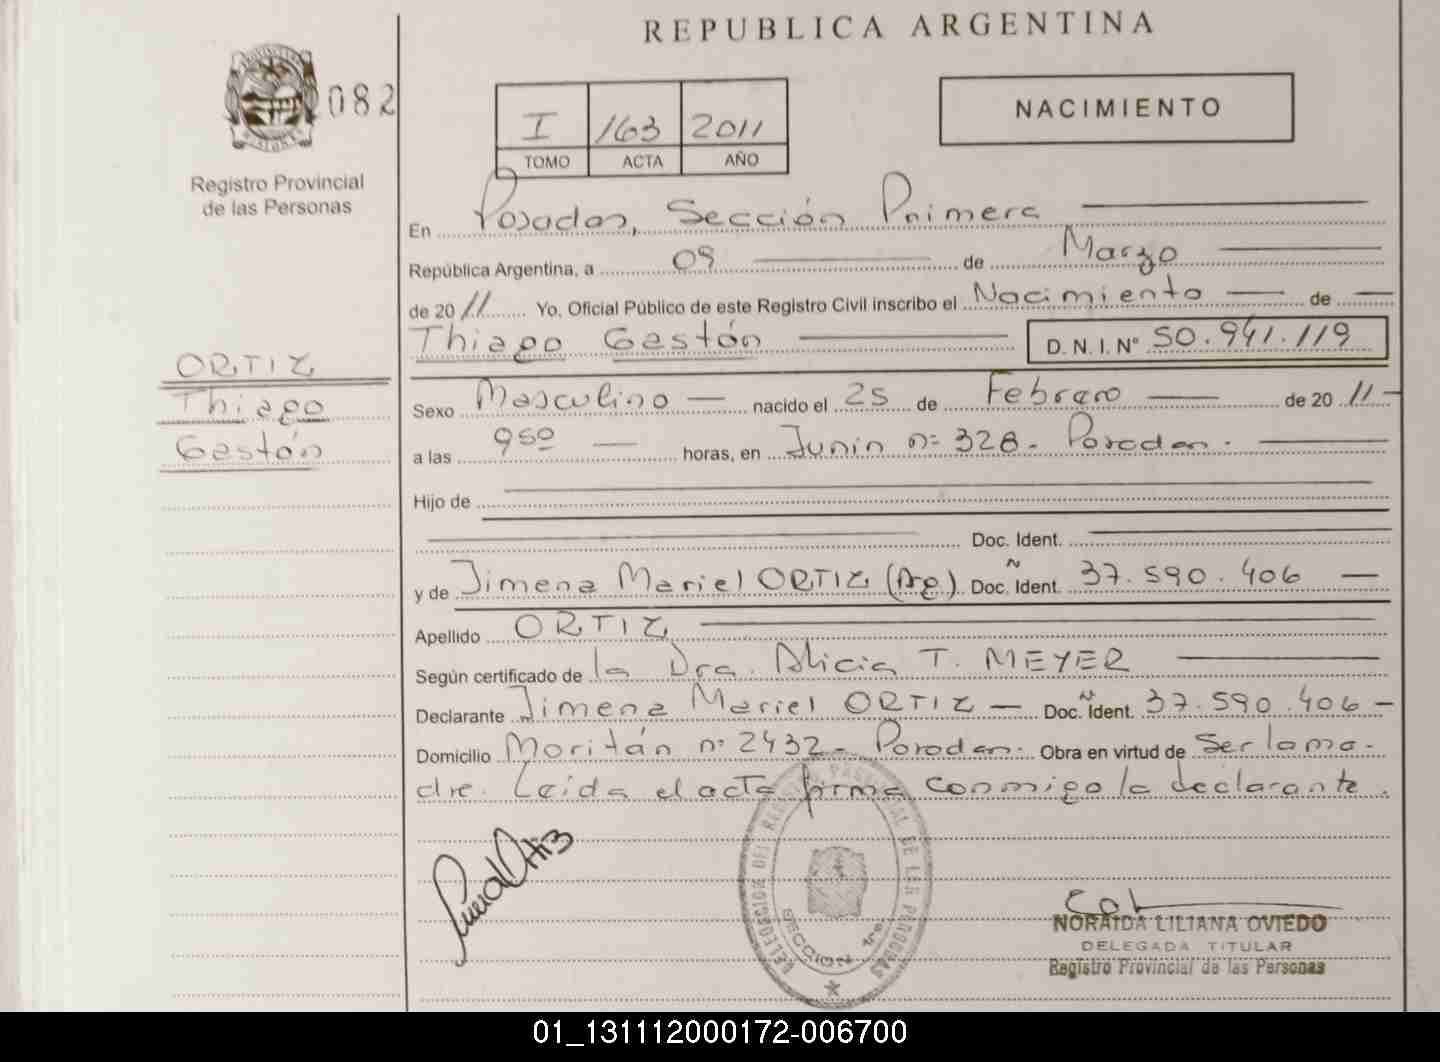 REPUBLICA ARGENTINA
082
Registro Provincial
de las Personas
I 163 2011
TOMO ACTA AÑO
NACIMIENTO
En Posadas, Sección Primera
República Argentina, a 09 de Marzo
de 2011 Yo, Oficial Público de este Registro Civil inscribo el Nacimiento de
Thiago Gastón D. N. I. N° 50.941.119
ORTIZ
Thiago
Gastón
Sexo Masculino nacido el 25 de Febrero de 2011
a las 950 horas, en Junín nº 328 - Posadas.
Hijo de
Doc. Ident.
y de Jimena Mariel ORTIZ (Arg.) Doc. Ident. 37.590.406
Apellido ORTIZ
Según certificado de la Dra. Alicia T. MEYER
Declarante Jimena Mariel ORTIZ Doc. Ident. 37.590.406
Domicilio nº 2432 - Posadas. Obra en virtud de ser la ma-
dre. Leída el acta firma conmigo la declarante.
DELEGACION DEL REGISTRO PROVINCIAL DE LAS PERSONAS
SECCION 1ª
NORAIDA LILIANA OVIEDO
DELEGADA TITULAR
Registro Provincial de las Personas
01_131112000172-006700